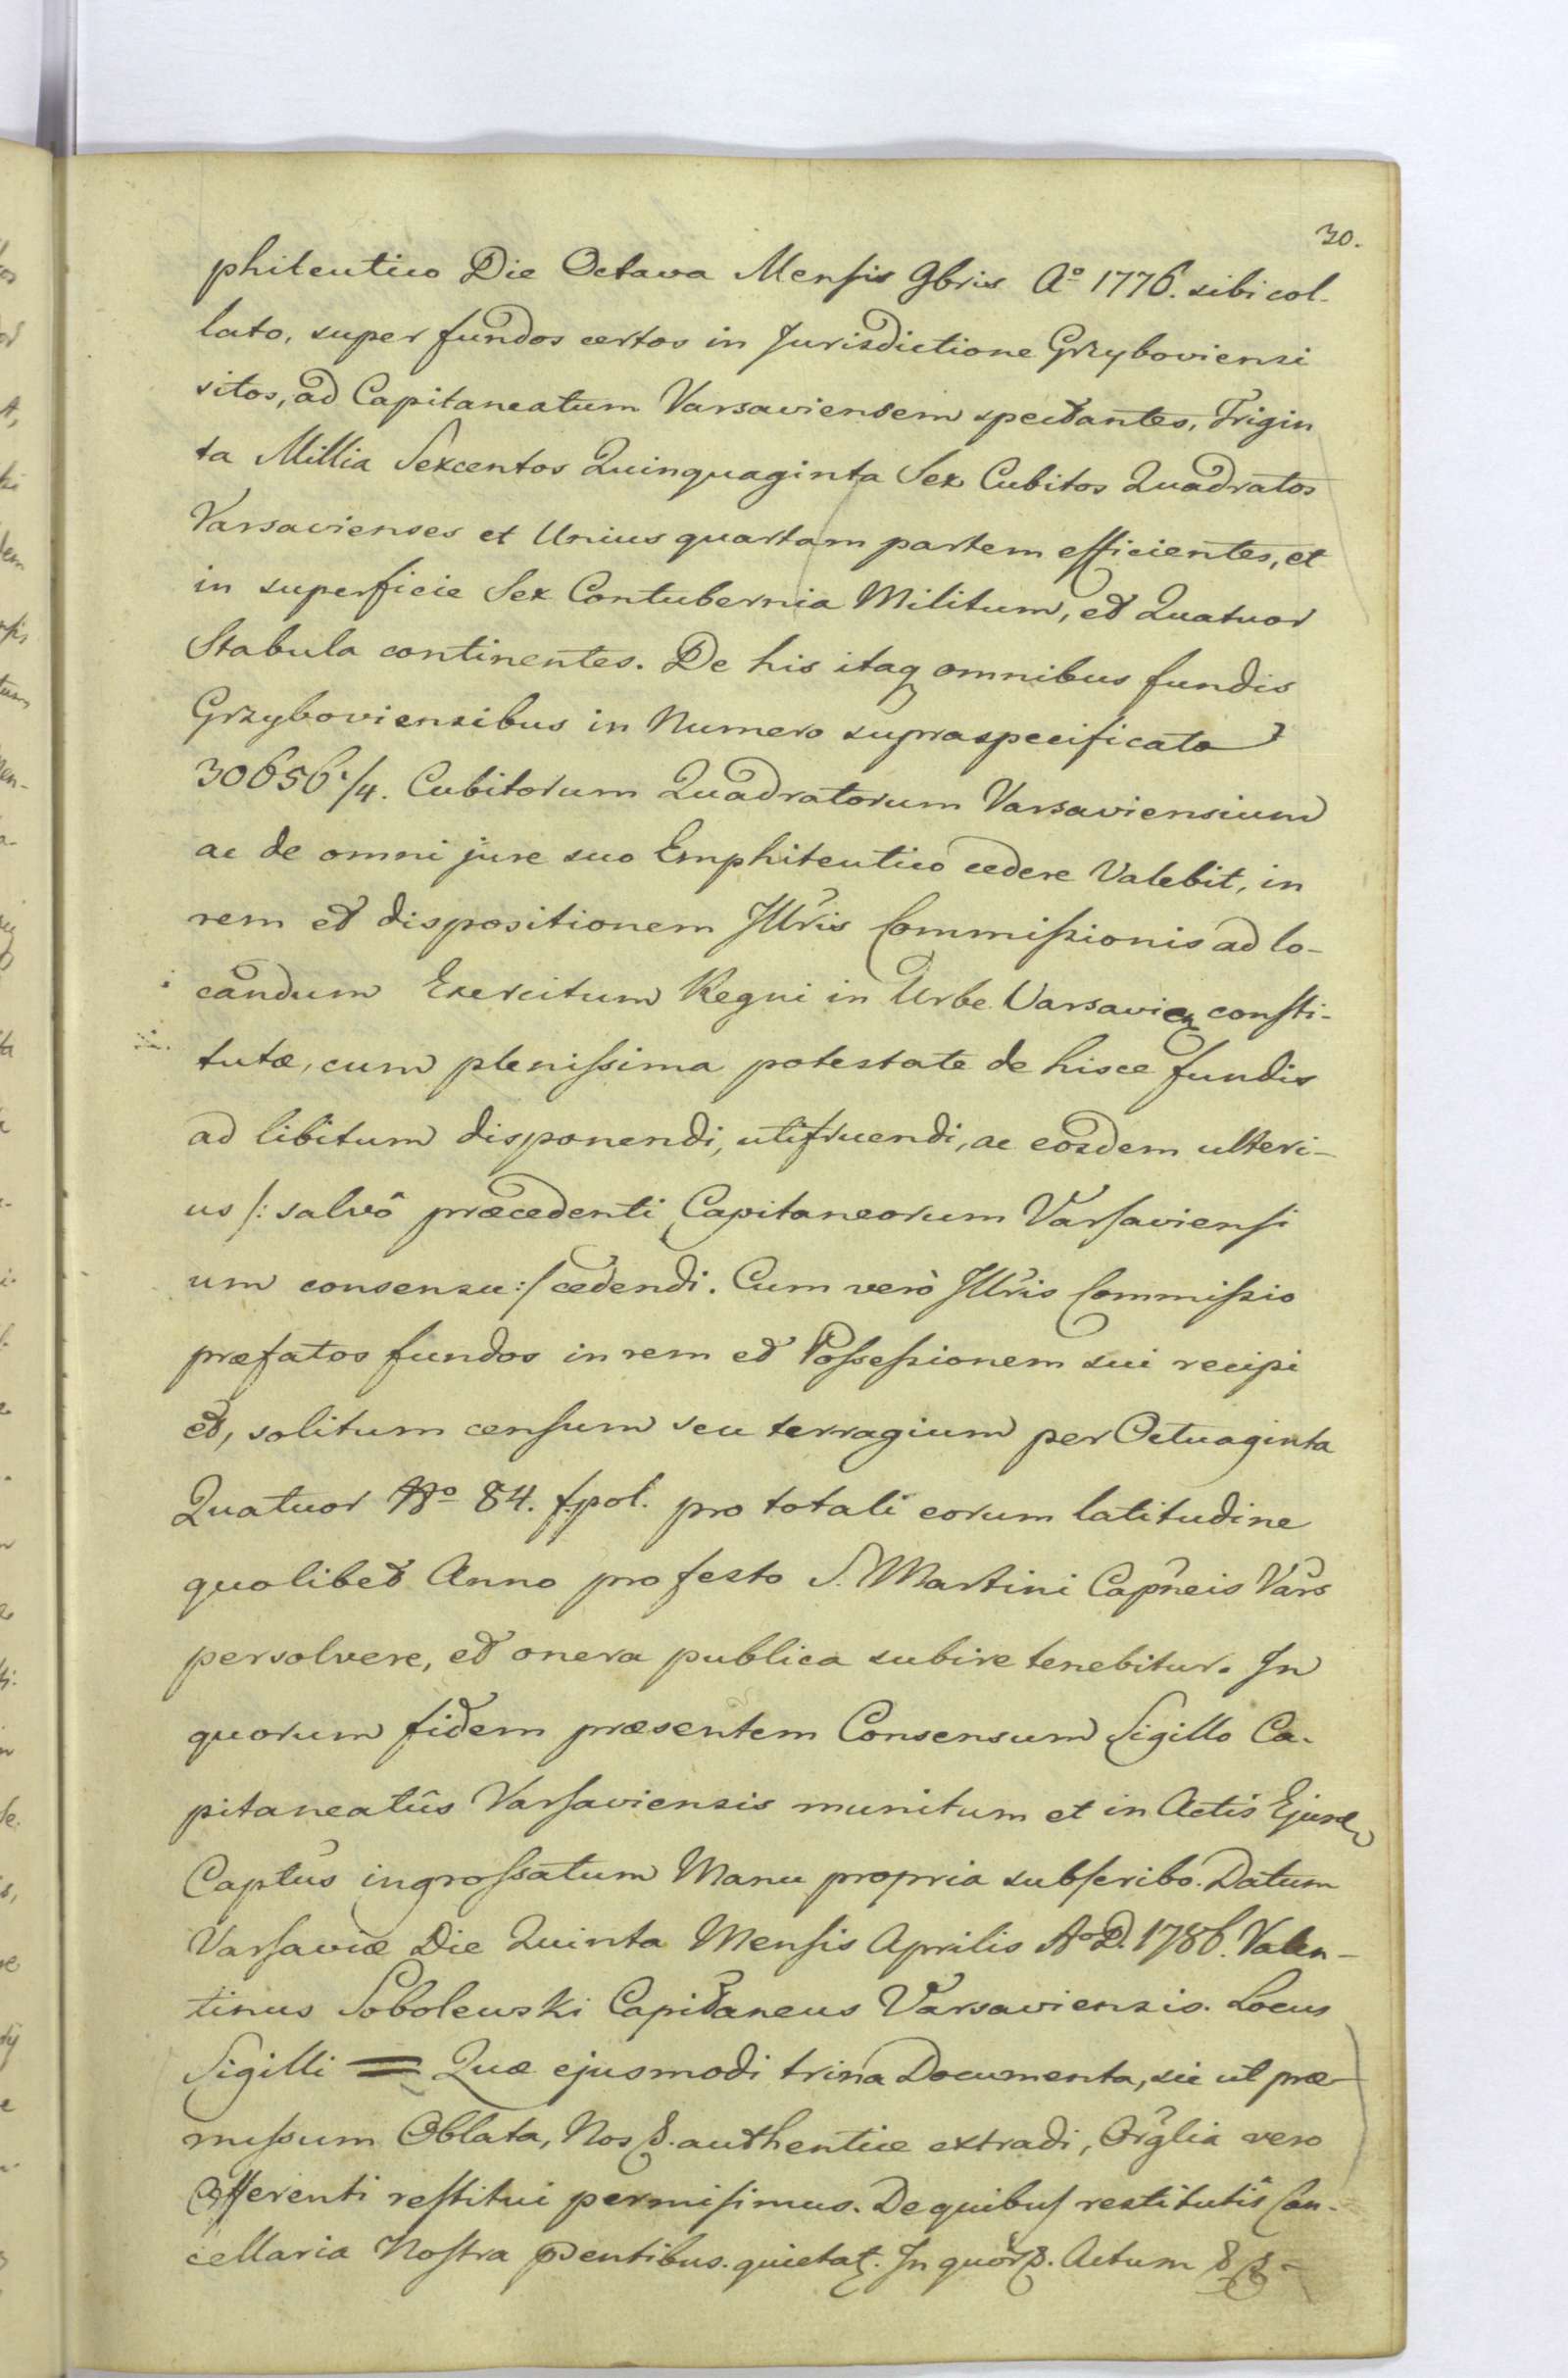 30.
phiteutico Die Octava Mensis 9bris Aº 1776. sibi col-
lato, super fundos certos in Jurisdictione Grzyboviensi
sitos, ad Capitaneatum Varsaviensem spectantes, Trigin
ta Millia Sexcentos Quinquaginta Sex Cubitos Quadratos
Varsavienses et Unius quartam partem efficientes, et
in superficie Sex Contubernia Militum, et Quatuor
Stabula continentes. De his itaq omnibus fundis
Grzyboviensibus in Numero supraspecificato
30656 1/4. Cubitorum Quadratorum Varsaviensium
ac de omni jure suo Emphiteutico cedere Valebit, in
rem et dispositionem Illris Commissionis ad lo-
candum Exercitum Regni in Urbe Varsavien consti-
tutæ, cum plenissima potestate de hisce fundis
ad libitum disponendi, utifruendi, ac eosdem ulteri-
us /: salvô præcedenti Capitaneorum Varsaviensi
um consensu :/ cedendi. Cum verò Illris Commissio
præfatos fundos in rem et Possessionem sui recipi
et, solitum censum seu terragium per Octuaginta
Quatuor Nº 84. f.pol. pro totali eorum latitudine
quolibet Anno pro festo S. Martini Capneis Vars
persolvere, et onera publica subire tenebitur. In
quorum fidem præsentem Consensum Sigillo Ca-
pitaneatûs Varsaviensis munitum et in Actis Ejusd
Captus ingrossatum Manu propria subscribo. Datum
Varsaviæ Die Quinta Mensis Aprilis Aº D. 1786. Valen-
tinus Sobolewski Capitaneus Varsaviensis. Locus
Sigilli = Quæ ejusmodi trina Documenta, sic ut præ-
missum Oblata, Nos authentice extradi, Orglia vero
Offerenti restitui permisimus. De quibus restitutis Can-
cellaria Nostra pntibus quietat. In quor. Actum